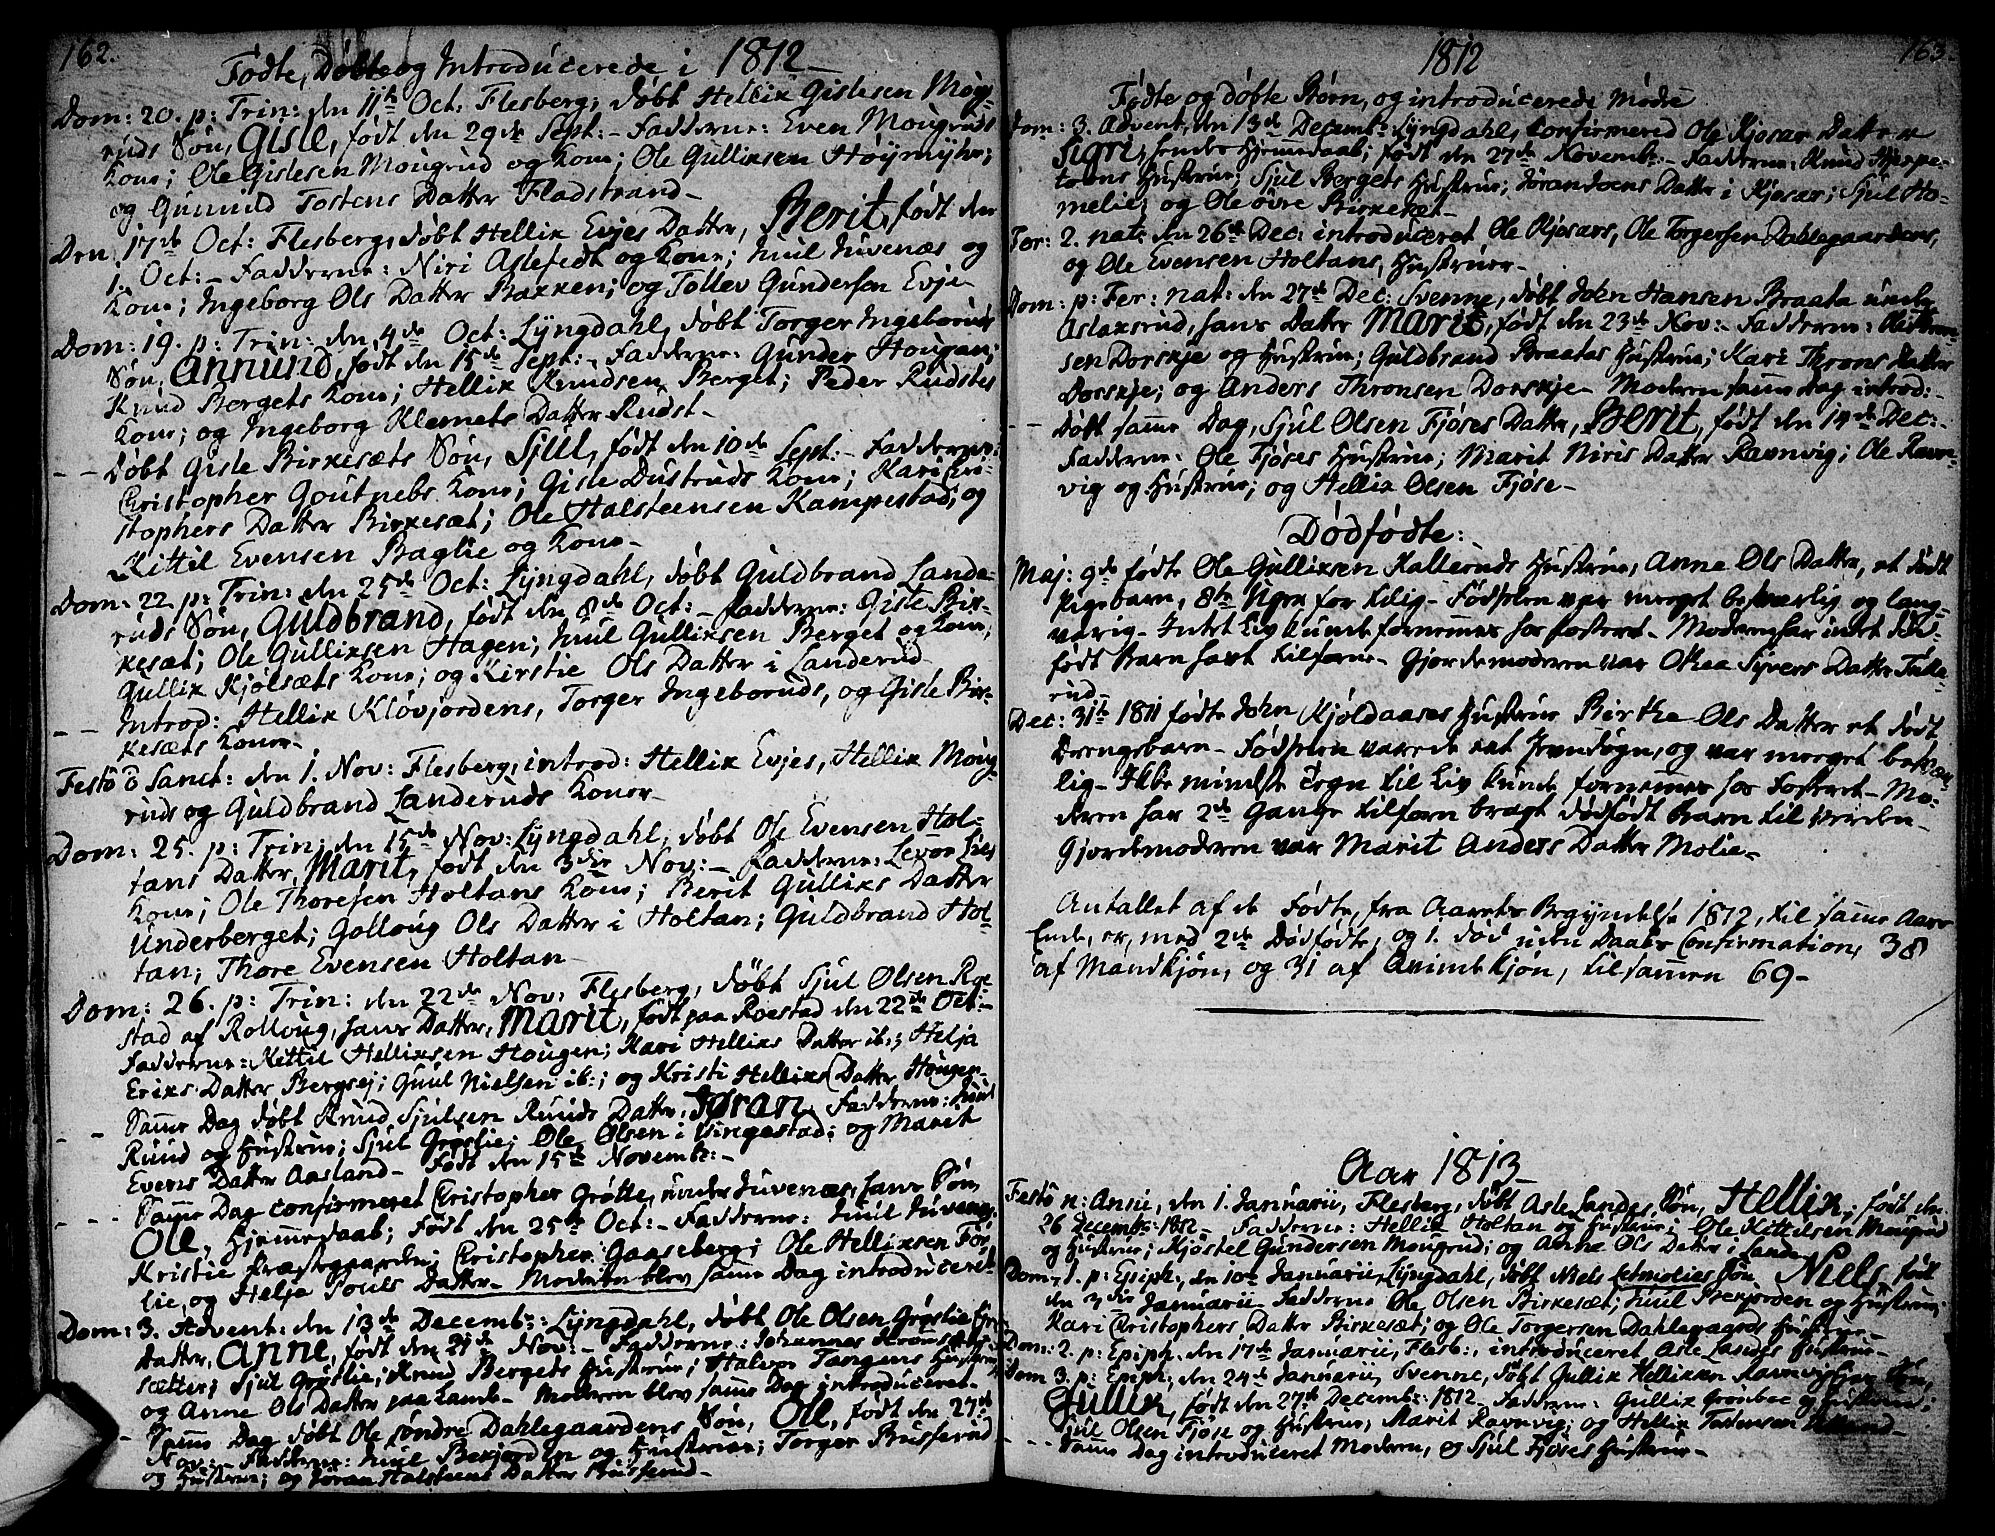 162.
Fødte, Døbte og Introducerede i 1812
Dom: 20. p: Trin: den 11te Oct: Flesberg, døbt Hellik Gislesen Moug-
ruds Søn, Gisle, født den 29de Sept: - Fadderne: Even Mougruds
Kone; Ole Gislesen Mougrud og Kone; Ole Gulliksen Høymyhr;
og Gunnild Tostens Datter Fladstrand -
Den 17de Oct: Flesberg, døbt Hellik Evjes Datter, Berit, født den
1. Oct: - Fadderne: Niri Aslefedt og Kone; Juul Juvenæs og
Kone; Ingeborg Ols Datter Bakken; og Tollev Gundersen Evje
Dom: 19. p: Trin: den 4de Oct: Lyngdahl, døbt Torger Ingeboruds
Søn, Annund, født den 15de Sept: - Fadderne: Gunder Hougan;
Knud Bergets Kone; Hellik Knudsen Berget; Peder Rudstes
Kone; og Ingeborg Klemets Datter Rudst -
- - Døbt Gisle Birkesæts Søn, Sjul, født den 10de Sept: - Fadderne:
Christopher Goutnebs Kone; Gisle Dustruds Kone; Kari Chri-
stophers Datter Birkesæt; Ole Halsteensen Kampestad; og
Kittil Evensen Baglie og Kone -
Dom: 22. p: Trin: den 25de Oct: Lyngdahl, døbt Guldbrand Lande-
ruds Søn, Guldbrand, født den 8de Oct: - Fadderne: Gisle Bir-
kesæt; Ole Gulliksen Hagen; Juul Gulliksen Berget og Kone;
Gullik Kjølsæts Kone; og Kirstie Ols Datter i Landerud
- - Introd: Hellik Kløvjordens, Torger Ingeboruds, og Gisle Bir-
kesæts Koner -
Festo O Sanct: den 1. Nov: Flesberg, introd: Hellik Evjes, Hellik Moug-
ruds og Guldbrand Landeruds Koner -
Dom: 25. p: Trin: den 15de Nov: Lyngdahl, døbt Ole Evensen Hol-
tans Datter, Marit, født den 3die Nov: - Fadderne: Levor Lies
Kone; Ole Thoresen Holtans Kone; Berit Gulliks Datter
Underberget; Golloug Ols Datter i Holtan; Guldbrand Hol-
tan; Thore Evensen Holtan -
Dom: 26. p: Trin: den 22de Nov: Flesberg, døbt Sjul Olsen Roe-
stad af Rolloug, hans Datter, Marit, født paa Roestad den 22de Oct: -
Fadderne: Kettil Helliksen Hougen; Kari Helliks Datter ib:; Helja
Eriks Datter Bergsej; Guul Nielsen ib:; og Kristi Helliks Datter Hougen -
- - Samme Dag døbt Knud Sjulsen Ruuds Datter, Jøran. Fadderne: Juul
Ruud og Hustrue; Sjul Grøslie; Ole Olsen i Vingestad; og Marit
Evens Datter Aasland - Født den 15de Novemb: -
- - - Samme Dag confirmeret Christopher Grötte, under Juvenæs, hans Søn,
Ole, Hjemmedaab; født den 25de Oct: - Fadderne: Juul Juvenæs;
Kristie Præstegaarden; Christopher Gaaseberg; Ole Helliksen För-
lie, og Helja Pouls Datter - Moderen blev samme Dag introduceret -
Dom: 3. Advent: den 13de Decemb: Lyngdahl, døbt Ole Olsen Grøslie
Datter, Anne, født den 21de Nov: - Fadderne: Johannes
sætter; Sjul Grøslie; Knud Bergets Hustrue; Halvor Tangens Hustrue
og Anne Ols Datter paa Lamb - Moderen blev samme Dag introduceret -
- Samme Dag døbt Ole søndre Dahlegaardens Søn, Ole, født den 27de
Nov: - Fadderne: Juul Bekjorden og Hustrue; Torger Busferud
og Hustrue; og Jøran Halsteens Datter Busferud -
163.
1812
Fødte og døbte Børn, og introducerede Mødre
Dom: 3. Advent, den 13de Decemb: Lyngdahl, confirmered Ole Kjosar Datter
Sigri, hendes Hjemmedaab; født den 27de Novemb: - Fadderne: Knud
toens Hustrue; Sjul Bergets Hustrue; Jøran Joens Datter i Kjosar; Sjul Ho-
melie; og Ole øvre Birkeket -
Fer: 2. nat: den 26de Dec: introduceret Ole Kjosars, Ole Torgersen Dahlegaardens,
og Ole Evensen Holtans, Hustruer -
Dom: p: Fer: nat: den 27de Dec: Svenne, døbt John Hansen Braata under
Aslaksrud, hans Datter Marit, født den 23de Nov: - Fadderne:
sen Dorskje og Hustrue; Guldbrand Braatas Hustrue; Kari Throns Datter
Dorskje; og Anders Thronsen Dorskje - Moderen samme Dag introd: -
- - Døbt samme Dag, Sjul Olsen Fjøses Datter, Berit, født den 14de Dec: -
Fadderne: Ole Fjøses Hustrue; Marit Niris Datter Ravnvig; Ole Ravn-
vig og Hustrue; og Hellik Olsen Fjøse -
Dødfødte:
Maj: 9de fødte Ole Gulliksen Kalleruds Hustrue, Anne Ols Datter, et dødt
Pigebarn, 8te Uger for tilig - Fødselen var meget besværlig og lang-
varig - Intet Liv kunde fornemmes hos Fosteret - Moderen har intet død-
født Barn havt tilforne - Gjordemoderen var Othea Syvers Datter Tule-
rud -
Dec: 31te 1811 fødte John Kjøldaases Hustrue Birthe Ols Datter et dødt
Drengebarn - Fødselen varede eet Jevndøgn, og var meget besvær-
lig - Ikke mindste Tegn til Liv kunde fornemmes hos Fosteret - Mo-
deren har 2de Gange tilforn bragt dødfødt Barn til Verden -
Gjordemoderen var Marit Anders Datter Molie -
Antallet af de Fødte, fra Aarets Begyndelse 1812, til samme Aars
Ende, er, med 2de Dødfødte, og 1. død uden Daabs Confirmation, 38
af Mandkjøn, og 31 af Qvindekjøn, tilsammen 69 -
Aar 1813 -
Festo n: Anni, den 1. Januarii, Flesberg, døbt Asle Landes Søn, Hellik, født den
26 Decemb: 1812 - Fadderne: Hellik Holtan og Hustrue; Ole Kittilsen Mougrud
og Hustrue; Kjøstel Gundersen Mougrud; og Anne Ols Datter i Lande
Dom: 1. p: Epiph:, den 10de Januarii, Lyngdahl, døbt Niels Søn, Niels, født
den 3die Januarii Fadderne Ole Olsen Birkesæt; Juul Bekjorden og Hustrue;
Kari Christophers Datter Birkesæt; og Ole Torgersen Dahlegaards Hustrue -
Dom: 2. p: Epiph: den 17de Januarii, Flesb:, introduceret Asle Landes Hustrue -
Dom 3. p: Epiph: den 24de Januarii, Svenne, døbt Gullik Helliksen Ravnvigs Søn,
Gullik, født den 27de Decemb: 1812 - Fadderne: Gullik Grønboe og Hustrue;
Sjul Olsen Fjøse og Hustrue; Marit Ravnvig; og Hellik
- - - Samme Dag introduceret Moderen, og Sjul Fjøses Hustrue -